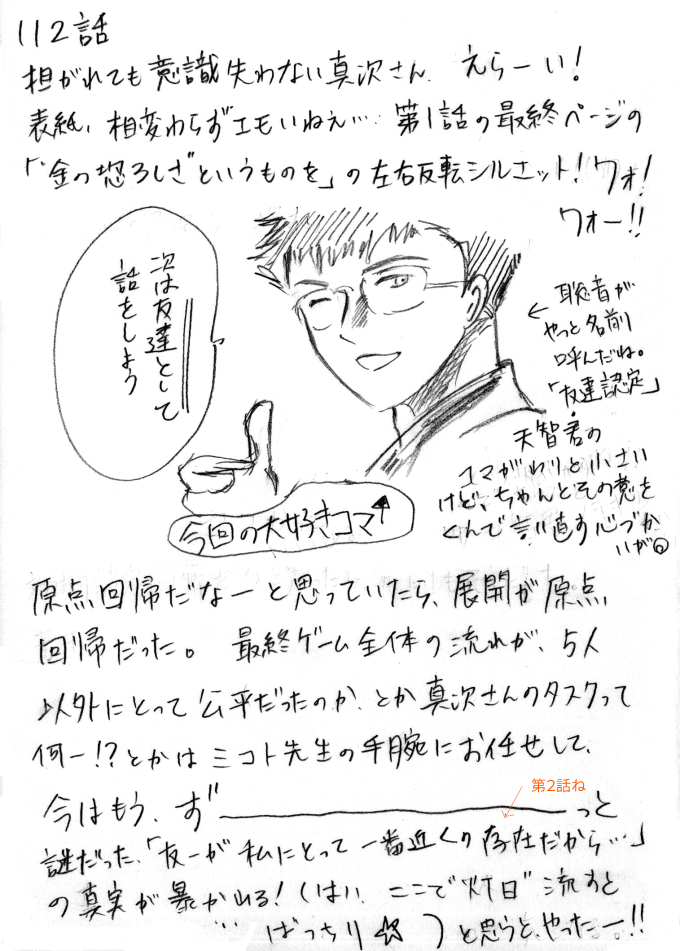 112話
担がれても意識失わない真次さん、えらーい!
表紙、相変わらずエモいねぇ…。第1話の最終ページの
「"金の恐ろしさ"というものを」の左右反転シルエット!ワォ!
ワォー!!
次は友達として
話をしよう
← 聡音が
やっと名前
呼んだね。
「友達認定」
天智君の
コマがわりと小さい
けど、ちゃんとその意を
くんで言い直す心づか
いが◎
今回の大好きコマ↑
原点回帰だなーと思っていたら、展開が原点
回帰だった。 最終ゲーム全体の流れが、5人
以外にとって公平だったのか、とか真次さんのタスクって
何ー!?とかはミコト先生の手腕にお任せして、
今はもう、ず"―っと
第2話ね
謎だった、「友一が私にとって一番近くの存在だから…」
の真実が暴かれる!(はい、ここで"灯日"流すと
…ばっちり☆)と思うと、やったー!!